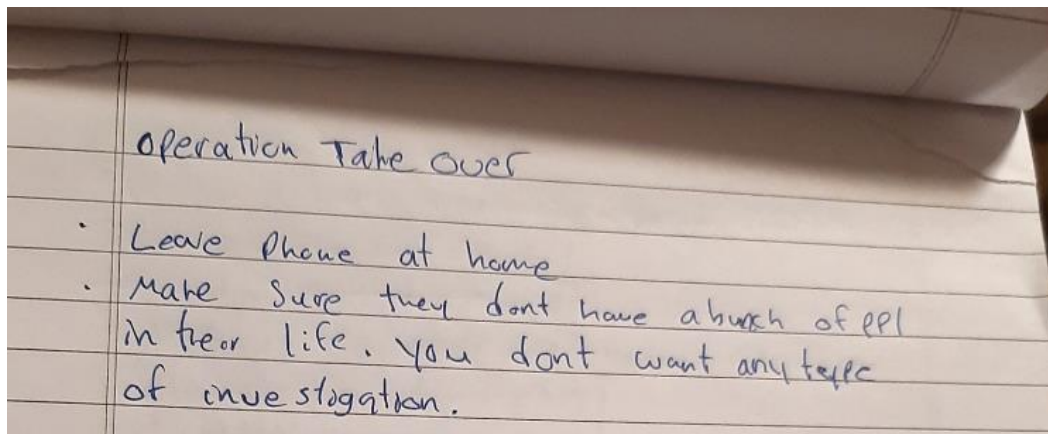 Operation Take over
. Leave Phone at home
. Make Sure they dont have a bunch of ppl
in their life. you dont want any type
of investigation.